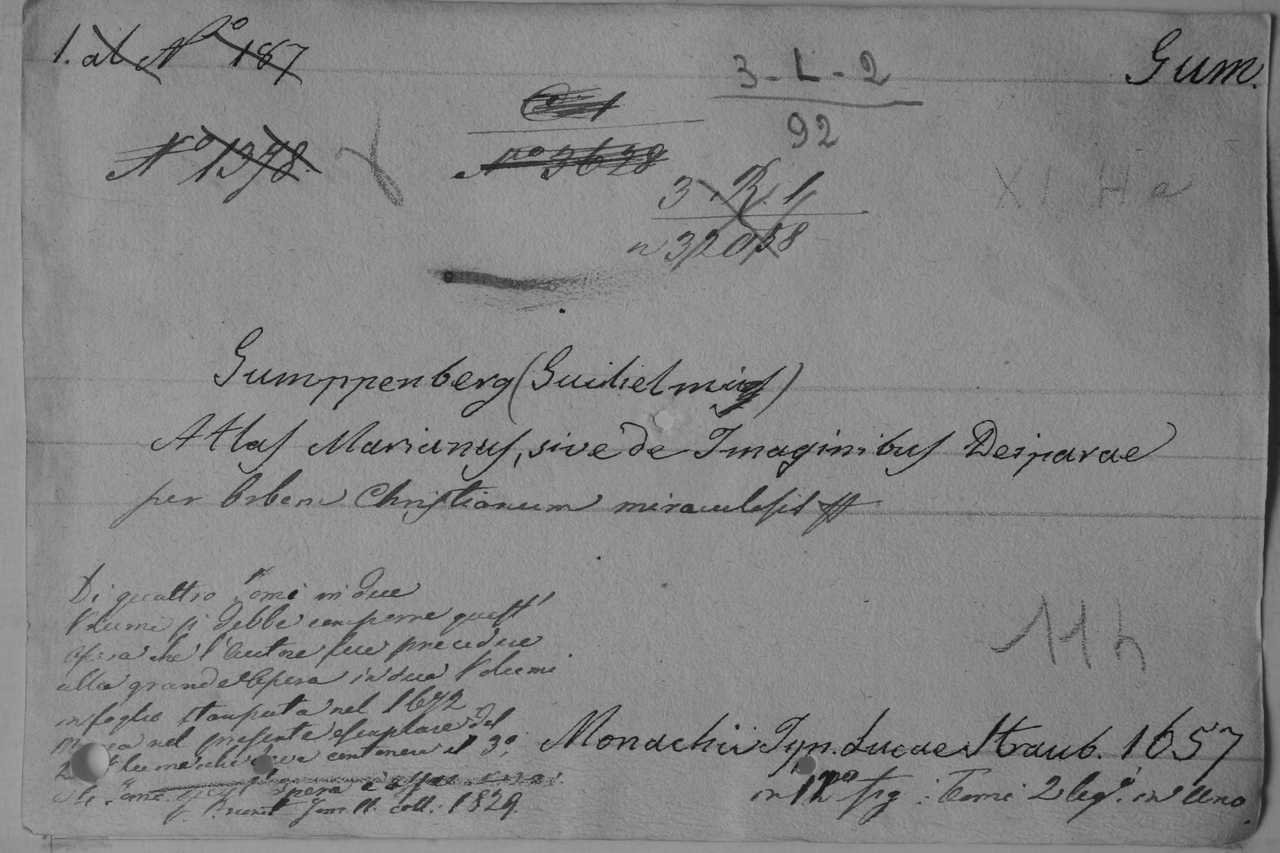 1. al Nº 187
Gum.
3-L-2
92
Nº 1378.
Nº 3628
XI H a
3 R. 1
n 32058
Gumppenberg (Guilielmus)
Atlas Marianus, sive de Imaginibus Deiparae
per Orbem Christianum miraculosis
Di quattro Tomi in due
Volumi si debbe comporre quest'
opera che l'Autore fece precedere
alla grande Opera in due Volumi
in foglio stampata nel 1672
Manca nel presente esemplare del
2º Volume che deve contenere il 3º
opera è assai
V. Brunet Tom II. coll. 1829.
11 h
Monachii Typ. Lucae Straub. 1657
in 12º fig. Tomi 2 leg. in Uno